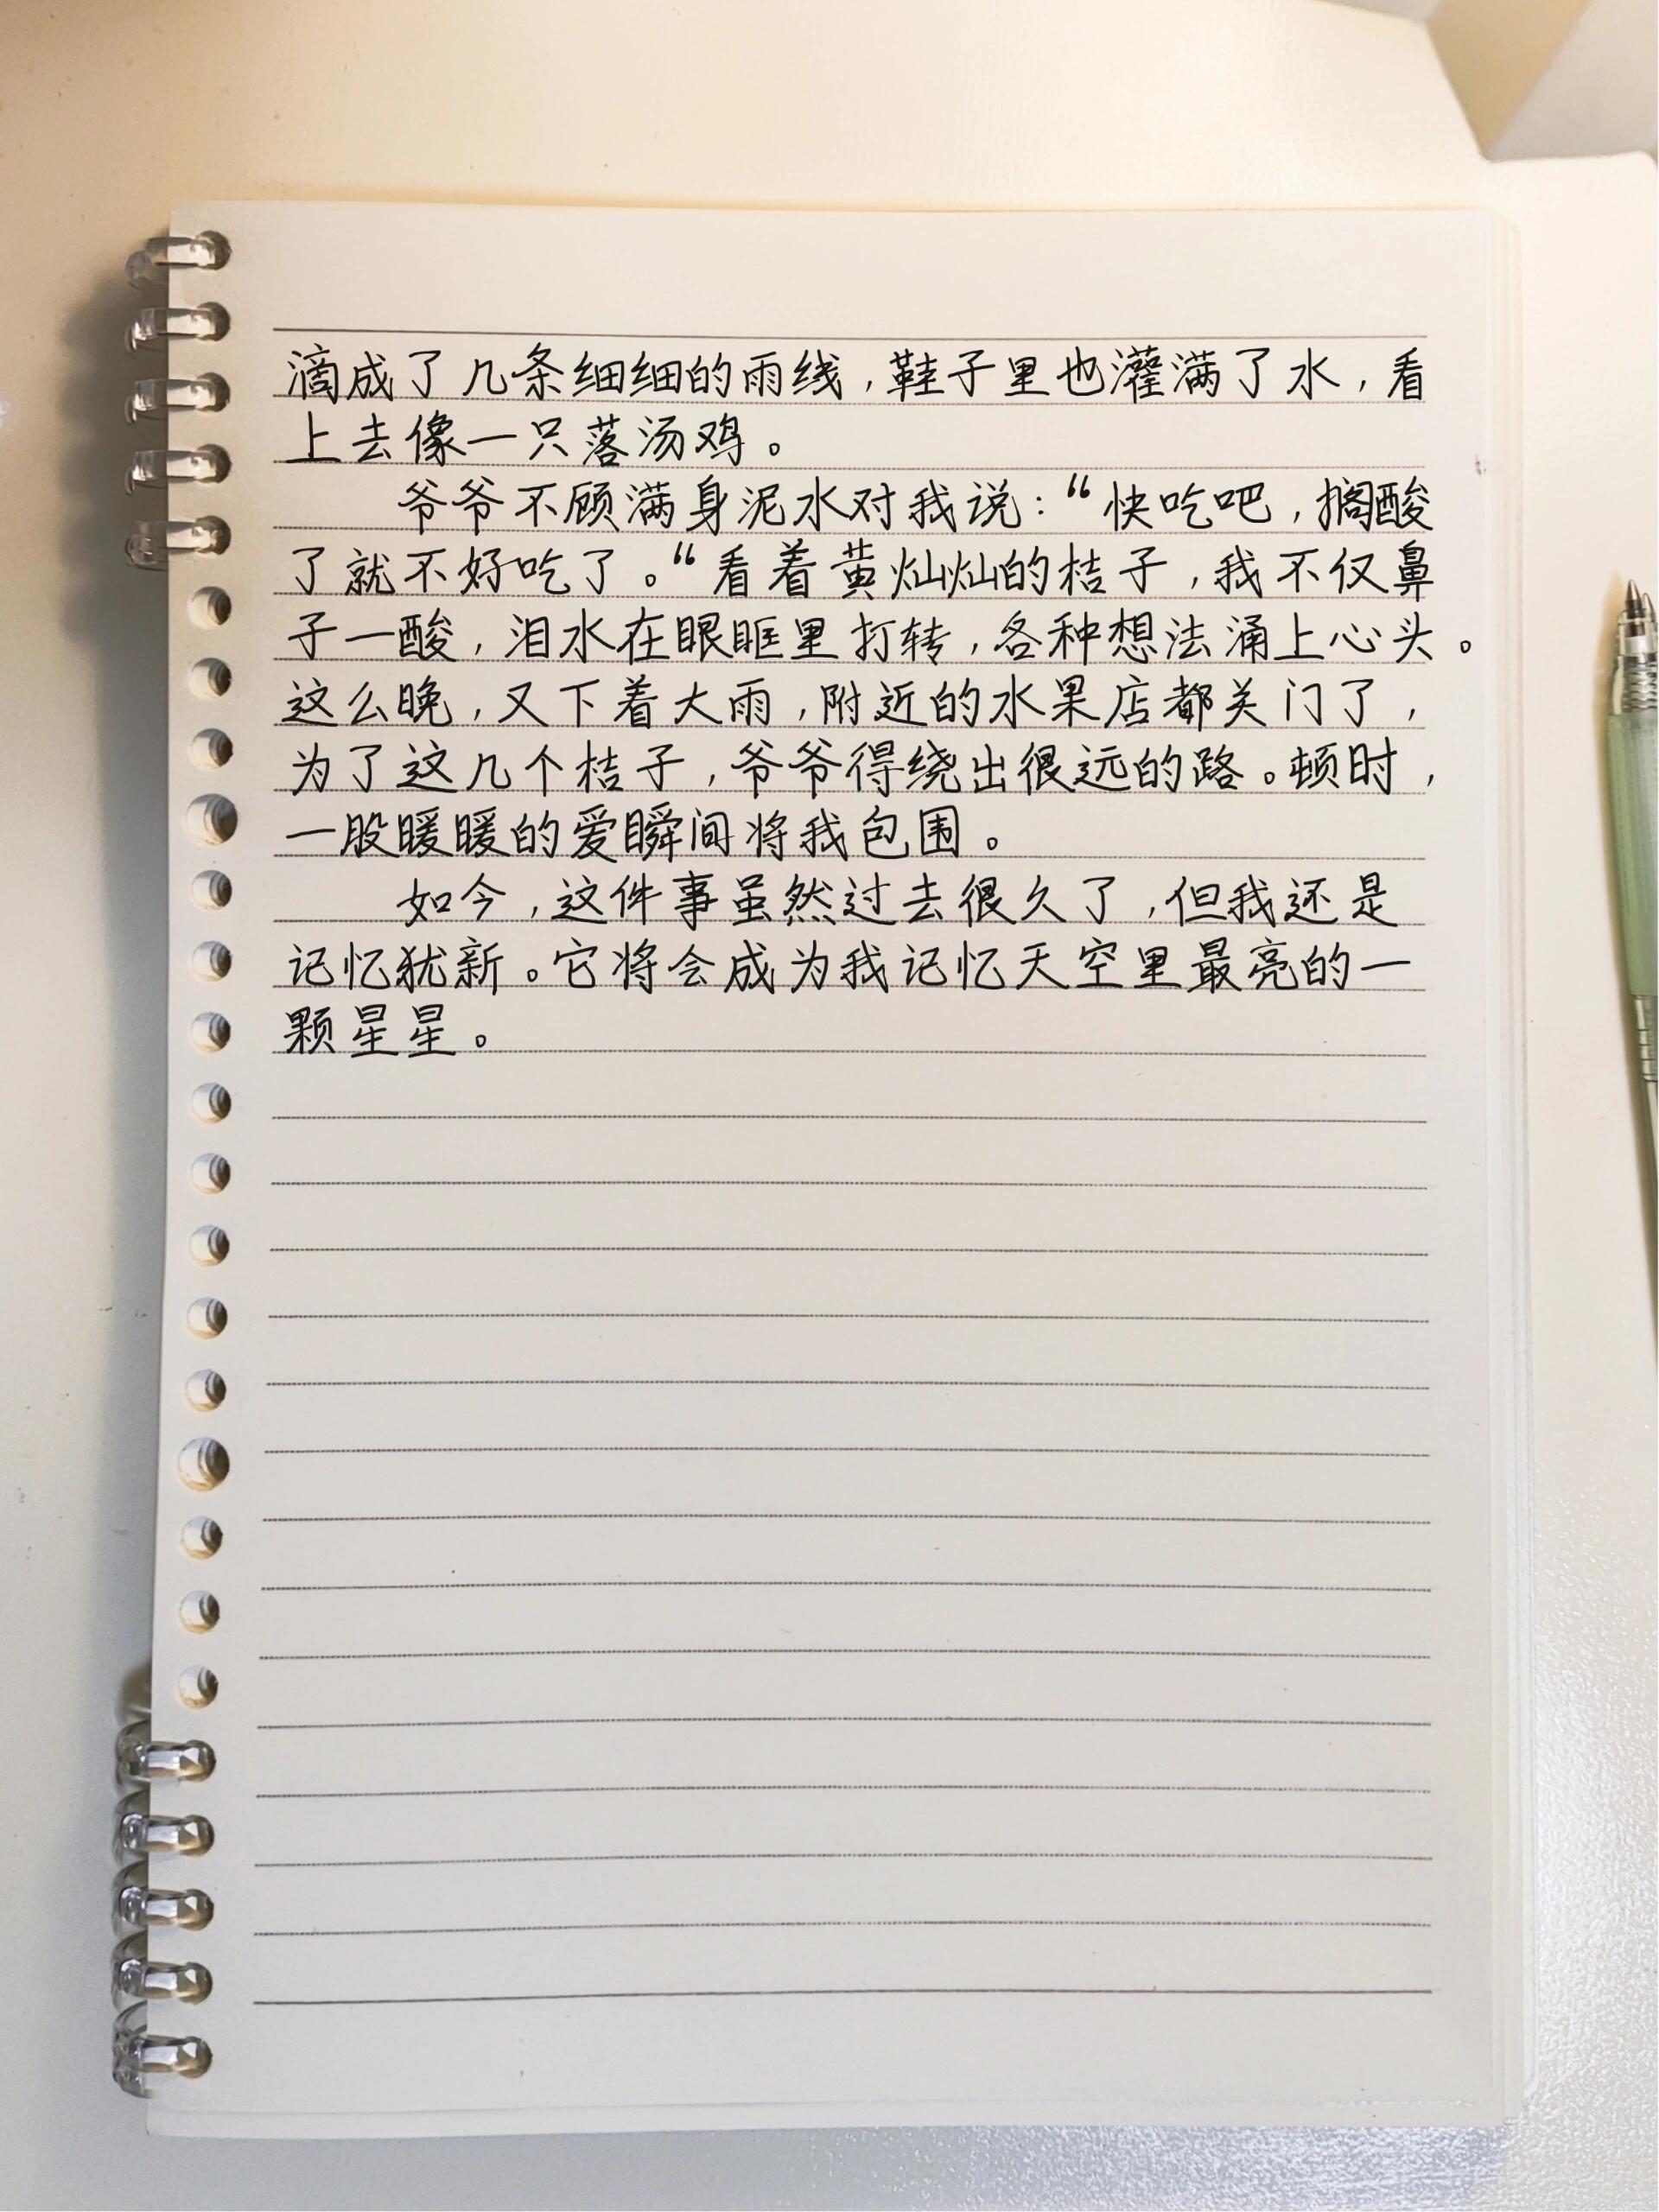 滴成了几条细细的雨线，鞋子里也灌满了水，看
上去像一只落汤鸡。
爷爷不顾满身泥水对我说：“快吃吧，搁酸
了就不好吃了。“看着黄灿灿的桔子，我不仅鼻
子一酸，泪水在眼眶里打转，各种想法涌上心头。
这么晚，又下着大雨，附近的水果店都关门了，
为了这几个桔子，爷爷得绕出很远的路。顿时，
一股暖暖的爱瞬间将我包围。
如今，这件事虽然过去很久了，但我还是
记忆犹新。它将会成为我记忆天空里最亮的一
颗星星。